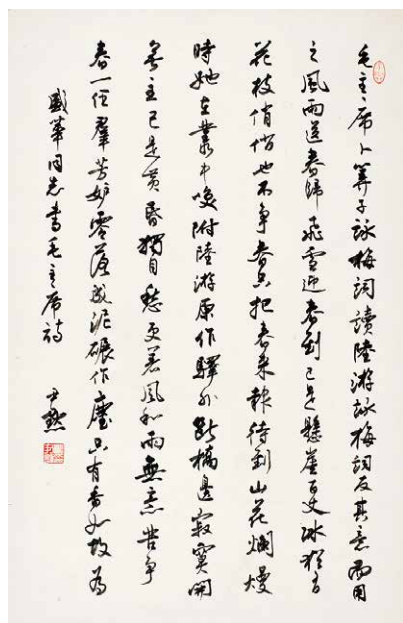 毛主席卜算子詠梅詞讀陸游詠梅詞反其意而用
之風雨送春歸飛雪迎春到已是懸崖百丈冰猶有
花枝俏俏也不争春只把春來報待到山花爛熳
時她在叢中咲附陸游原作驛外斷橋邊寂寞開
無主已是黃昏獨自愁更著風和雨無意苦争
春一任羣芳妒零落成泥碾作塵只有香如故為
盛華同志書毛主席詩 尹默